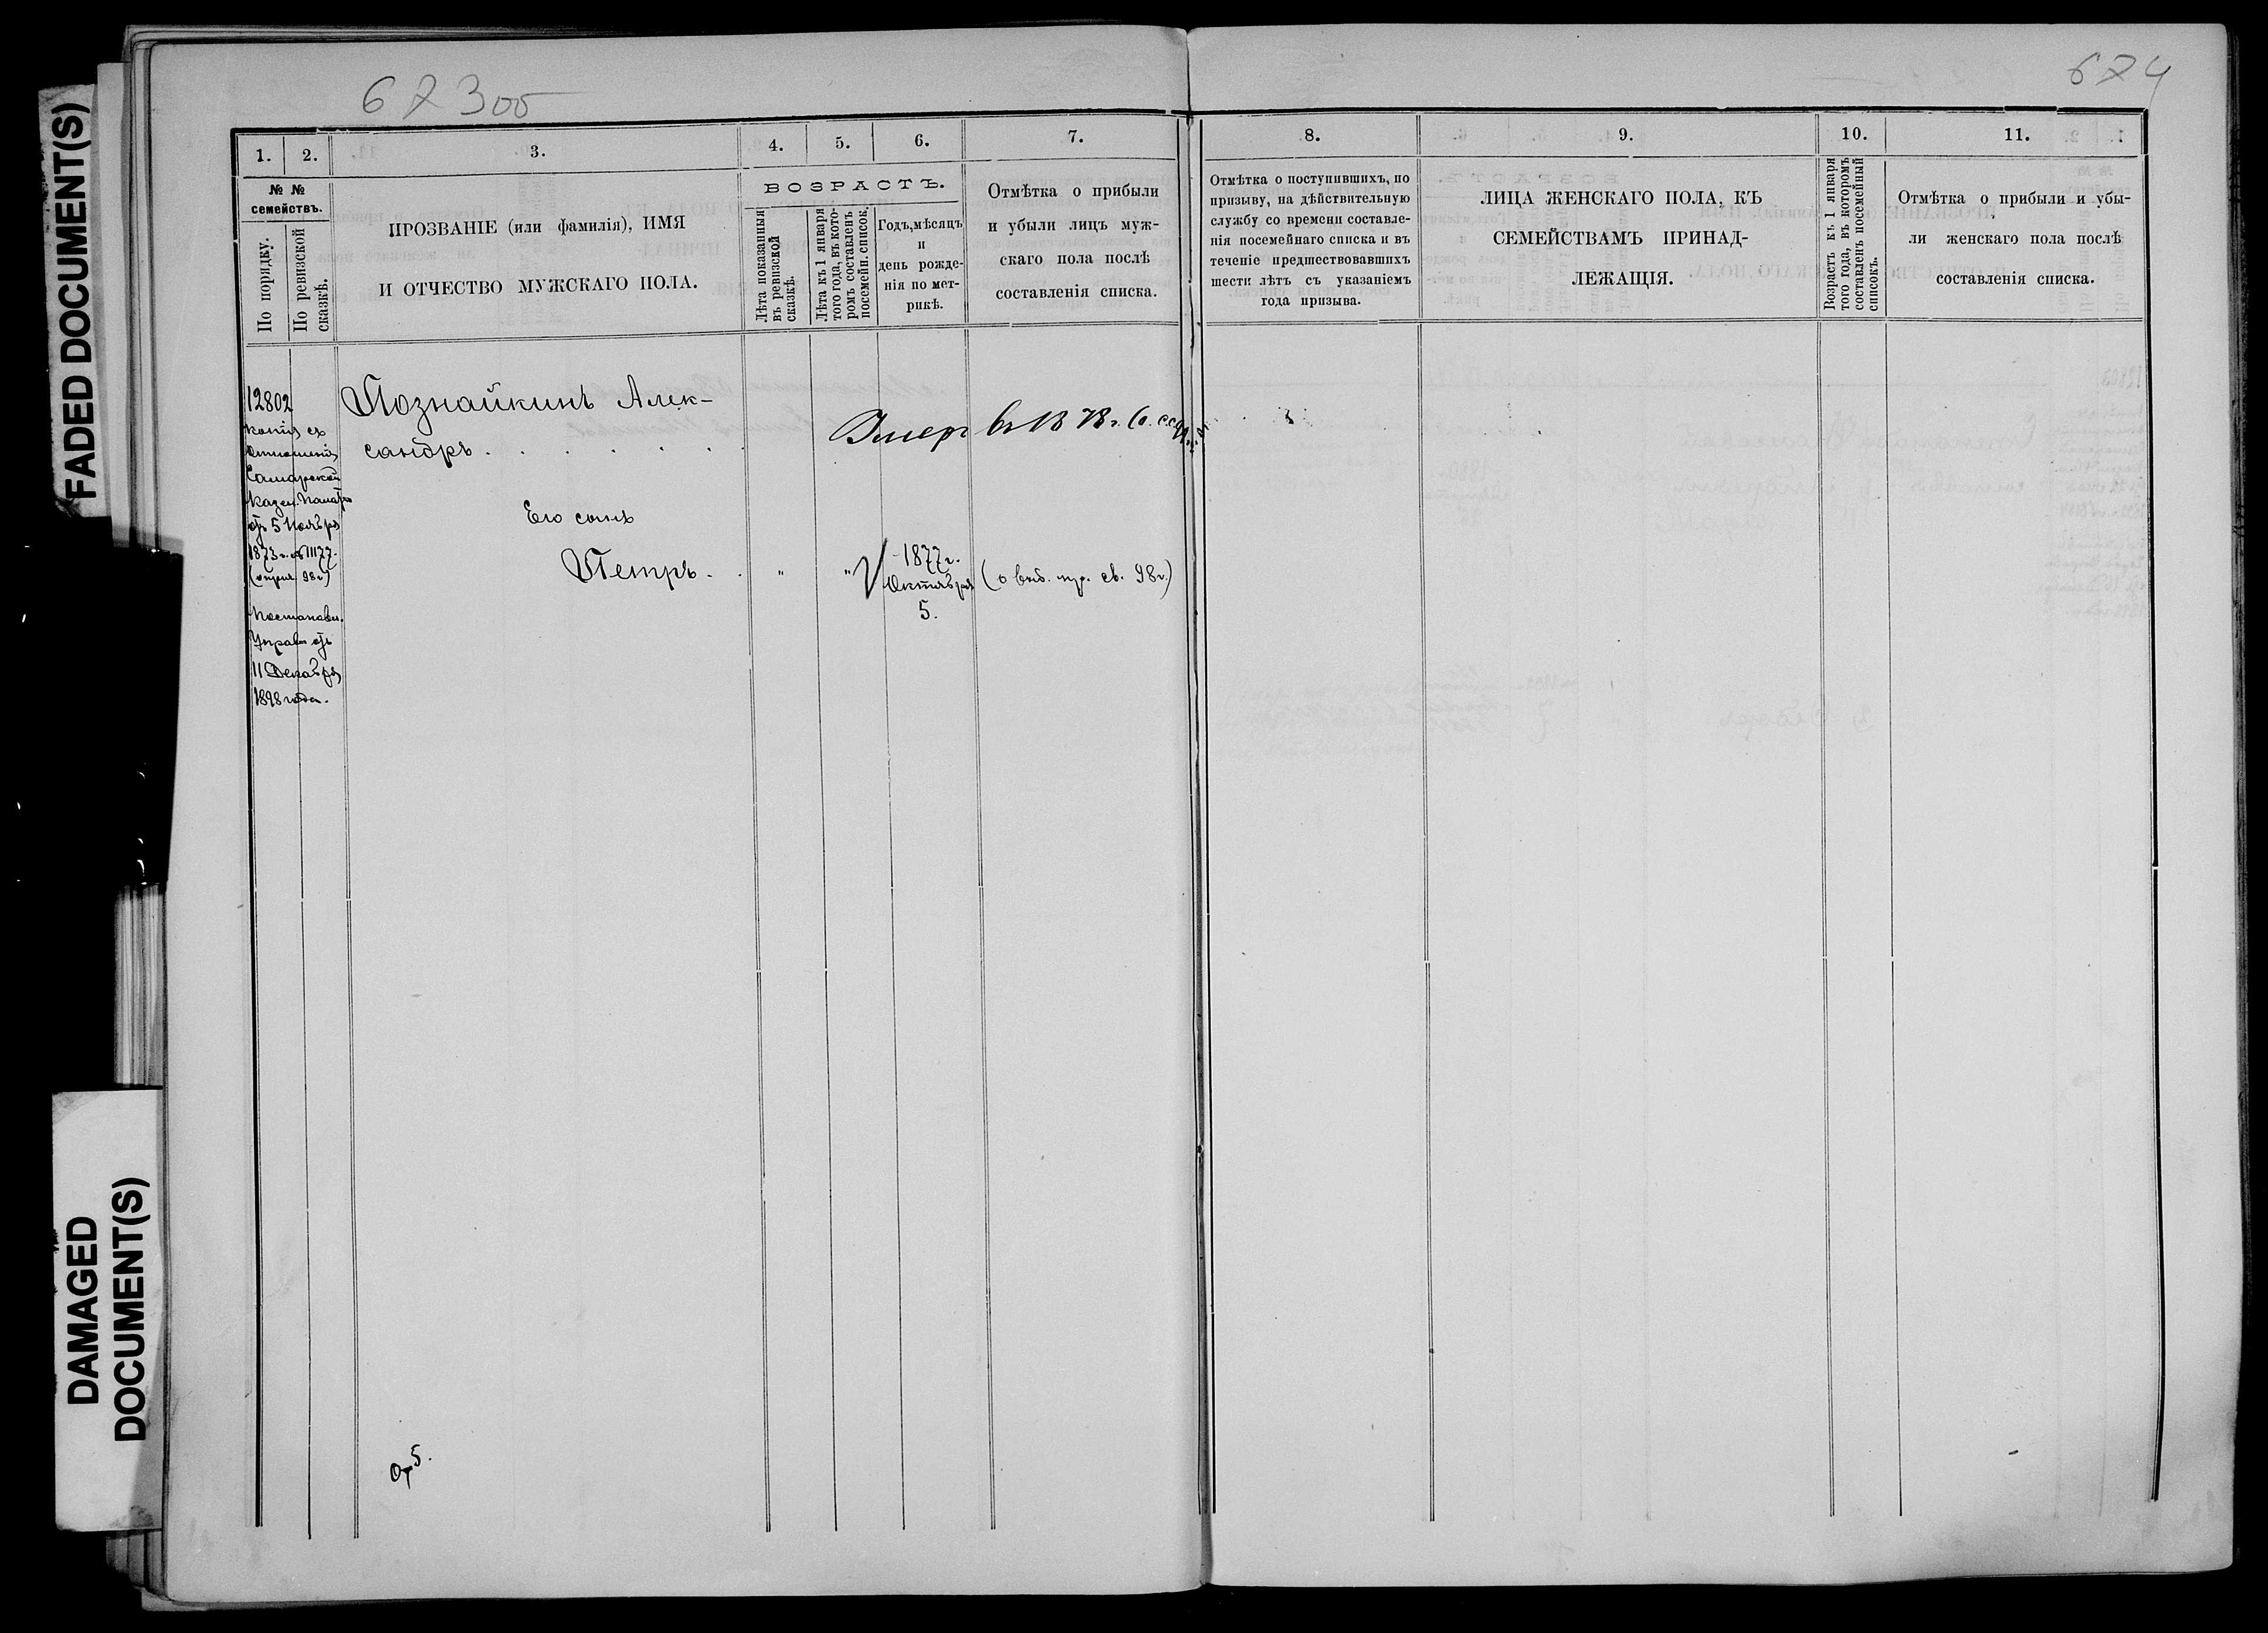 FADED DOCUMENT(S)
DAMAGED
DOCUMENT(S)
673об
674
1.
2.
3.
4.
5.
6.
7.
8.
9.
10.
11.
№ №
семействъ.
По порядку.
По ревизской
сказкѣ.
ПРОЗВАНІЕ (или фамилія), ИМЯ
И ОТЧЕСТВО МУЖСКАГО ПОЛА.
ВОЗРАСТЪ.
Лѣта показанныя
въ ревизской
сказкѣ.
Лѣта къ 1 января
того года, въ кото-
ромъ составленъ
посемейн. список.
Годъ, мѣсяцъ
и
день рожде-
нія по мет-
рикѣ.
Отмѣтка о прибыли
и убыли лицъ муж-
скаго пола послѣ
составленія списка.
Отмѣтка о поступившихъ, по
призыву, на дѣйствительную
службу со времени составле-
нія посемейнаго списка и въ
теченіе предшествовавшихъ
шести лѣтъ съ указаніемъ
года призыва.
ЛИЦА ЖЕНСКАГО ПОЛА, КЪ
СЕМЕЙСТВАМЪ ПРИНАД-
ЛЕЖАЩІЯ.
Возрастъ къ 1 января
того года, въ которомъ
составленъ посемейный
списокъ.
Отмѣтка о прибыли и убы-
ли женскаго пола послѣ
составленія списка.
12802
Копія съ
отношенія
Самарской
Казен. Палаты
отъ 5 Ноября
1873 г. № 11177.
98 г)
Постановл.
Управы отъ
11 Декабря
1898 года.
Познайкинъ Алек-
сандръ . . . . . .
Умеръ въ 1878 г.
Его сынъ
Петръ. . " "
1877 г.
Октября
5.
98 г.)
5.